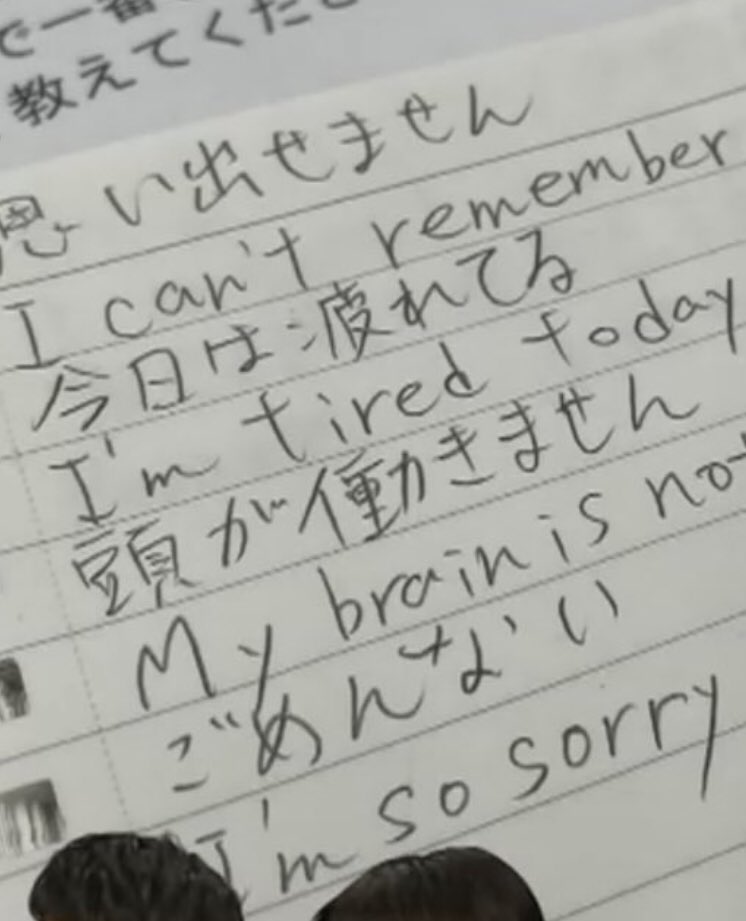 で一番
教えてくだ
思い出せません
I can't remember
今日は疲れてる
I'm tired today
頭が働きません
My brain is not
ごめんない
I'm so sorry